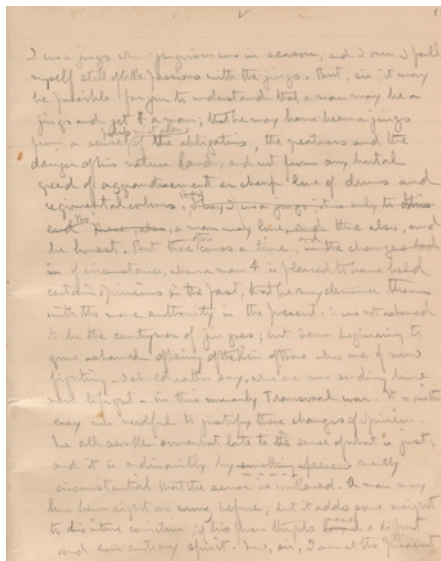 I was a jingo when jingoism was in season, and I own I feel
myself still of like passions with the jingo. But, sir, it may
be possible for you to understand that a man may be a
jingo and yet a man; that he may have been a jingo
from a sense of the obligations, the greatness and the
danger of his native land, and not from any brutal
greed of aggrandisement or cheap love of drums and
regimental columns. I was a jingo; it is only to
a man may love these also, and
be honest. But there often comes a time, in the changes
in of circumstance, when a man is pleased to have held
certain opinions in the past, that he may denounce them
with the more authority in the present. I was not ashamed
to be the countryman of jingoes; but I am beginning to
grow ashamed of being of the kin of those who are now
fighting - I should rather say, who are now sending brave
men to fight - in this unmanly Transvaal war. It is neither
easy nor needful to justify these changes of opinion.
We all awake somewhat late to the sense of what is just,
and it is ordinarily by something merely
circumstantial that the sense is awakened. A man may
have been right or wrong before, but it adds some weight
to his intervention, if his former thoughts a different
and even contrary spirit. Now, sir, I am at the present